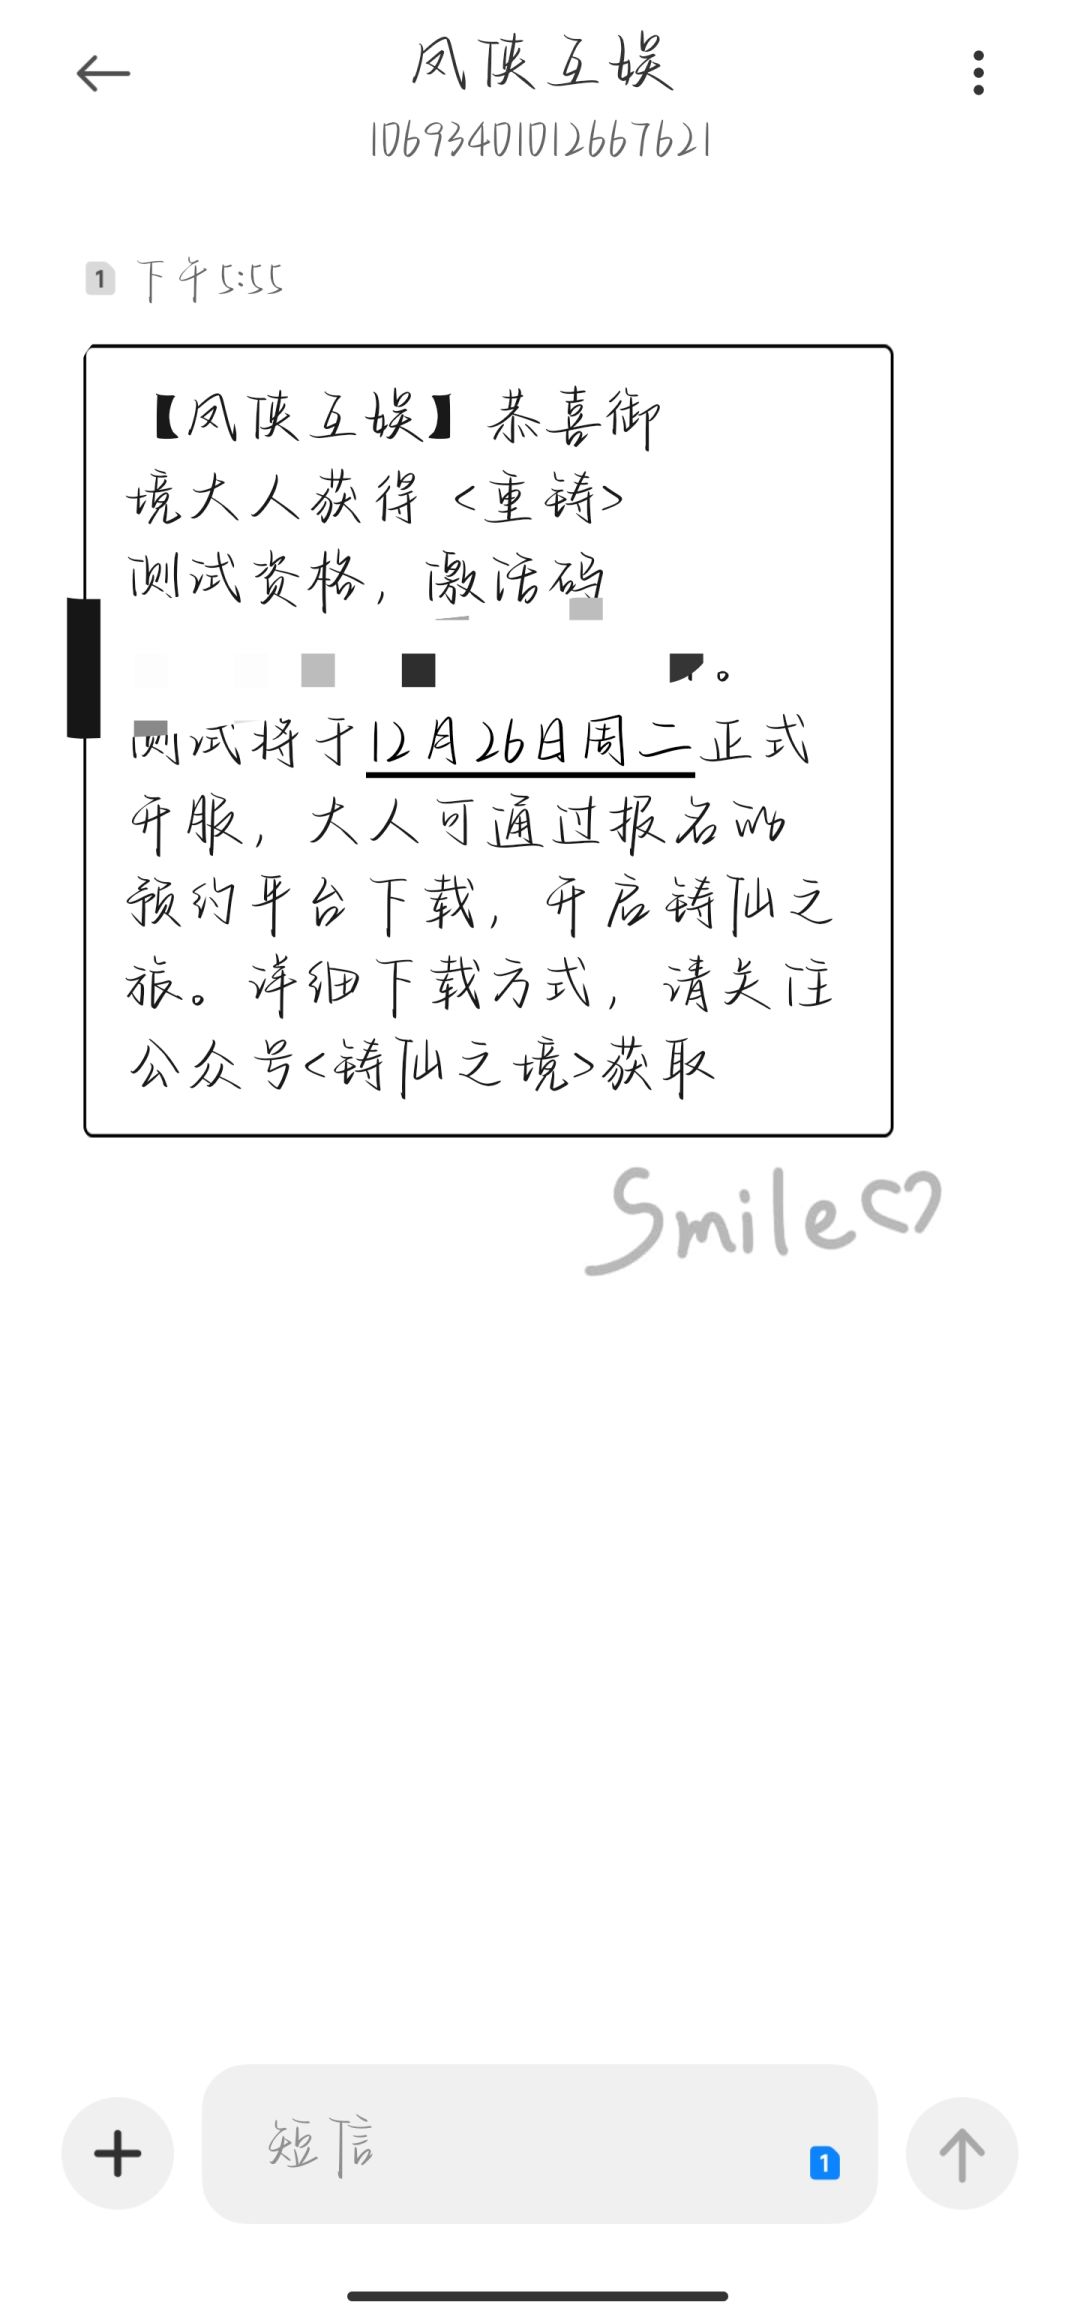 凤侠互娱
10693401012667621
1 下午5:55
【凤侠互娱】恭喜御
境大人获得<重铸>
测试资格，激活码
。
测试将于12月26日周二正式
开服，大人可通过报名的
预约平台下载，开启铸仙之
旅。详细下载方式，请关注
公众号<铸仙之境>获取
Smile
短信
1